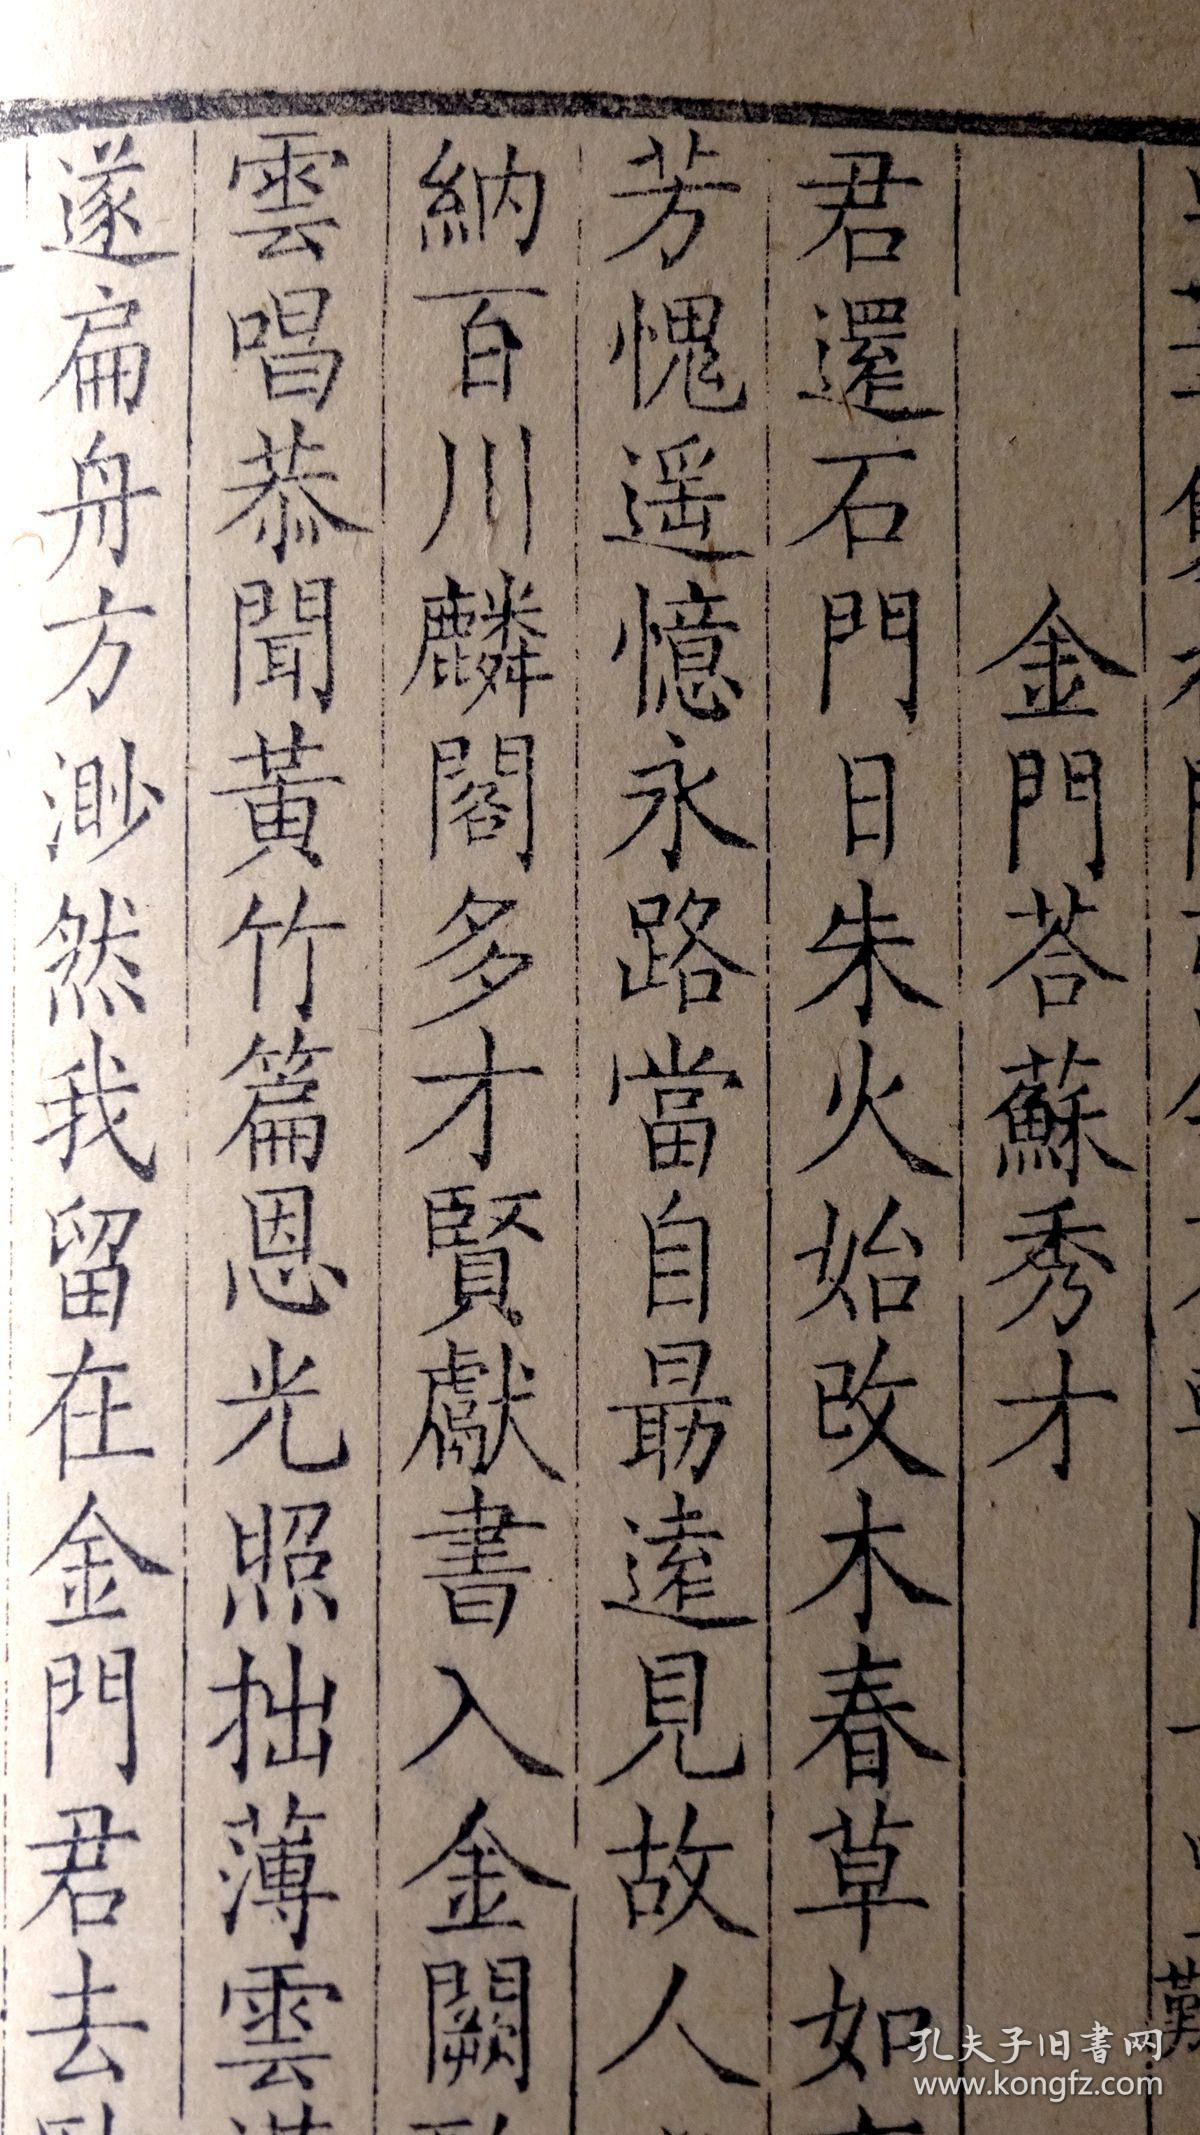 金門荅蘇秀才
君還石門日朱火始改木春草如
芳愧遥憶永路當自勗遠見故人
納百川麟閣多才賢獻書入金闕
雲唱恭聞黃竹篇恩光照拙薄雲
遂扁舟方渺然我留在金門君去
孔夫子旧书网
www.kongfz.com